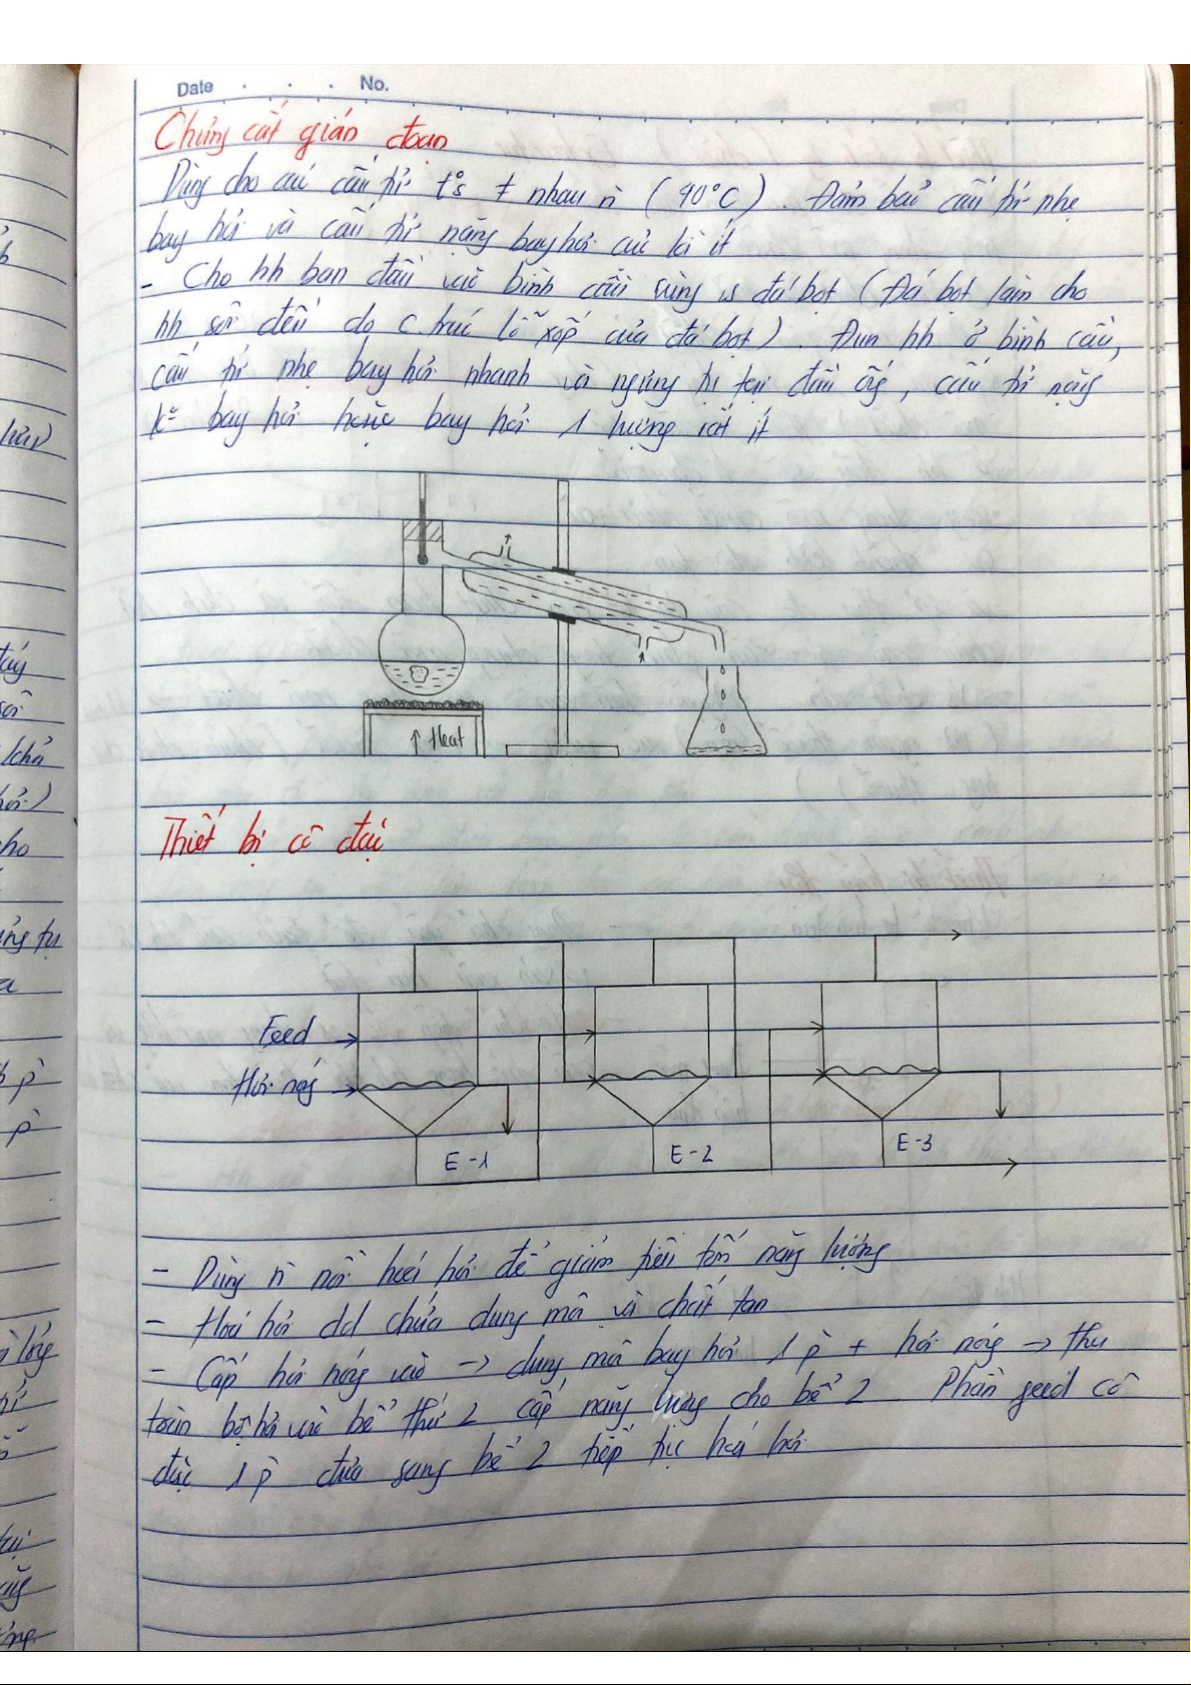 Date . . . No.
Chưng cất gián đoạn
Dùng cho các cấu tử t°s ≠ nhau n̄ (90°C). Đảm bảo cấu tử nhẹ
bay hơi và cấu tử nặng bay hơi cực kì ít
- Cho hh ban đầu vào bình cầu cùng vs đá bọt (Đá bọt làm cho
hh sôi đều do c.trúc lỗ xốp của đá bọt). Đun hh ở bình cầu,
cấu tử nhẹ bay hơi nhanh và ngưng tụ tại đầu ống, cấu tử nặng
k° bay hơi hoặc bay hơi 1 lượng rất ít
↑ Heat
Thiết bị cô đặc
Feed
Hơi nóng
E-1
E-2
E-3
- Dùng n̄ nồi hoá hơi để giảm tiêu tốn năng lượng
- Hoá hơi dd chứa dung môi và chất tan
- Cấp hơi nóng vào → dung môi bay hơi 1 p̄ + hơi nóng → thu
toàn bộ hơi vào bể thứ 2 cấp năng lượng cho bể 2. Phần feed cô
đặc 1 p̄ đưa sang bể 2 tiếp tục hoá hơi